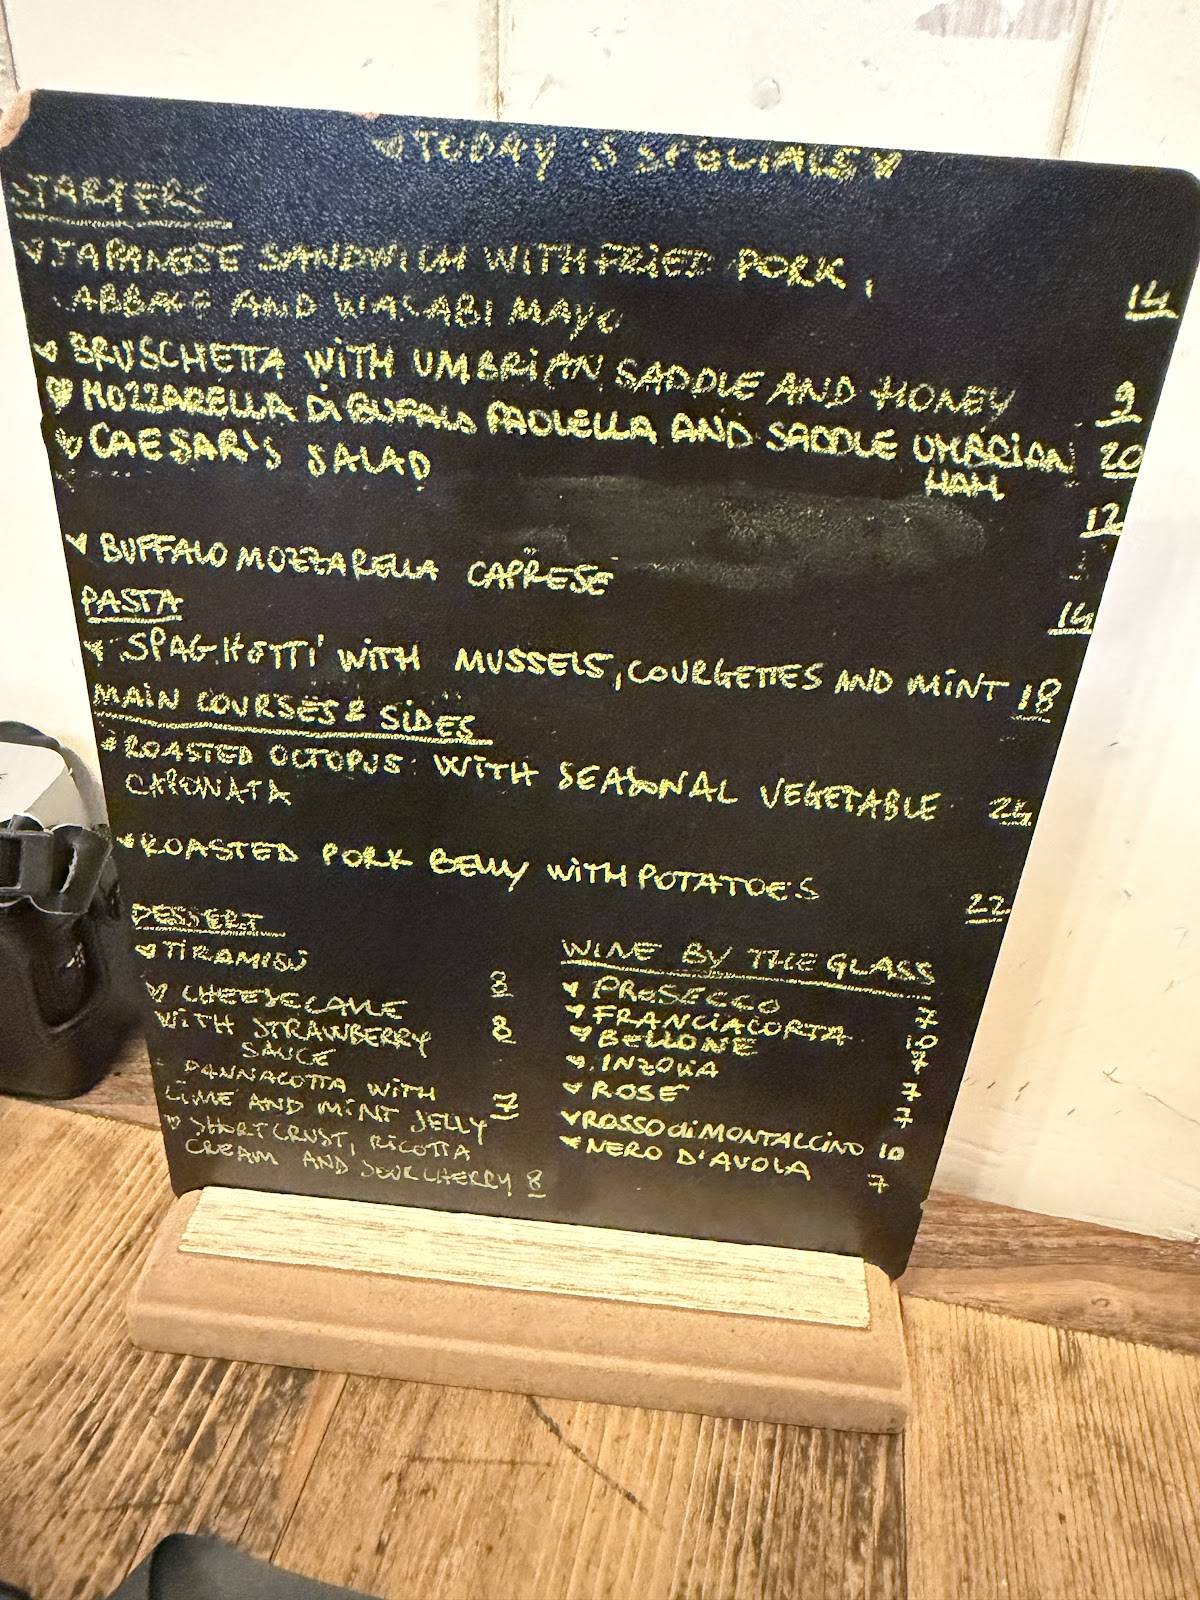 TODAY'S SPECIALS
STARTERS
JAPANESE SANDWICH WITH FRIED PORK,
CABBAGE AND WASABI MAYO 14
BRUSCHETTA WITH UMBRIAN SADDLE AND HONEY 9
MOZZARELLA Di BUFALA PAOLELLA AND SADDLE UMBRIAN 20
HAM
CAESAR'S SALAD 12
BUFFALO MOZZARELLA CAPRESE 14
PASTA
SPAGHETTI WITH MUSSELS, COURGETTES AND MINT 18
MAIN COURSES & SIDES
ROASTED OCTOPUS WITH SEASONAL VEGETABLE 24
CAPONATA
ROASTED PORK BELLY WITH POTATOES 22
DESSERT
TIRAMISÙ 8
CHEESECAKE
WITH STRAWBERRY 8
SAUCE
PANNACOTTA WITH 7
LIME AND MINT JELLY
SHORTCRUST, RICOTTA
CREAM AND SOUR CHERRY 8
WINE BY THE GLASS
PROSECCO 7
FRANCIACORTA 10
BELLONE 7
INZOLIA 7
ROSE 7
ROSSO di MONTALCINO 10
NERO D'AVOLA 7